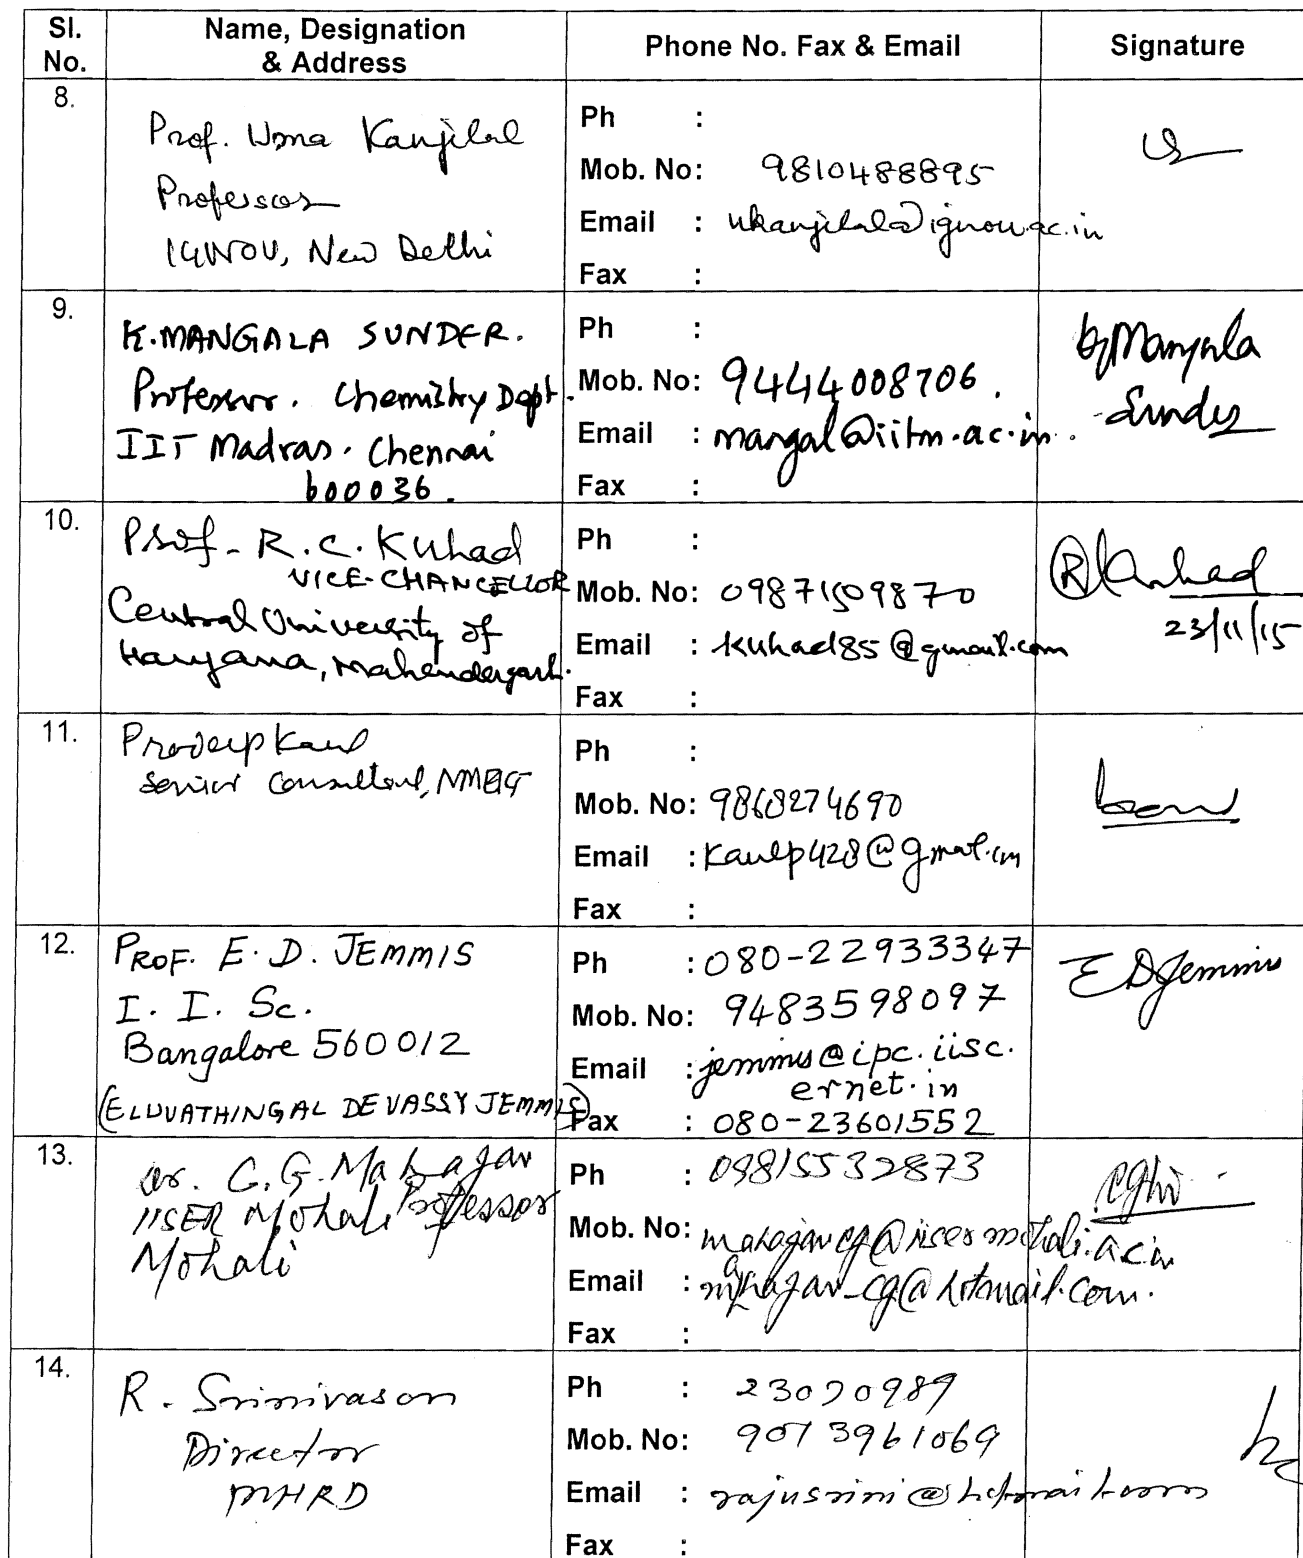 Sl. No. Name, Designation & Address Phone No. Fax & Email Signature
8.
Prof. Uma Kanjilal
Professor
IGNOU, New Delhi
Ph :
Mob. No: 9810488895
Email : ukanjilal@ignou.ac.in
Fax :
9.
K. MANGALA SUNDER.
Professor. Chemistry Dept.
IIT Madras. Chennai
600036.
Ph :
Mob. No: 9444008706.
Email : mangal@iitm.ac.in.
Fax :
Mangala
Sunder
10.
Prof. R.C. Kuhad
VICE-CHANCELLOR
Central University of
Haryana, Mahendergarh.
Ph :
Mob. No: 09871509870
Email : kuhad85@gmail.com
Fax :
RCKuhad
23/11/15
11.
Pradeep Kaul
Senior Consultant, NMEICT
Ph :
Mob. No: 9868274690
Email : kaulp428@gmail.com
Fax :
12.
PROF. E. D. JEMMIS
I. I. Sc.
Bangalore 560012
(ELUVATHINGAL DEVASSY JEMMIS)
Ph : 080-22933347
Mob. No: 9483598097
Email : jemmis@ipc.iisc.
ernet.in
Fax : 080-23601552
E D Jemmis
13.
Dr. C.G. Mahajan
IISER Mohali Professor
Mohali
Ph : 09815532873
Mob. No: mahajancg@iisermohali.ac.in
Email : mahajan_cg@hotmail.com.
Fax :
14.
R. Srinivasan
Director
MHRD
Ph : 23070989
Mob. No: 9013961069
Email : rajusrini@hotmail.com
Fax :